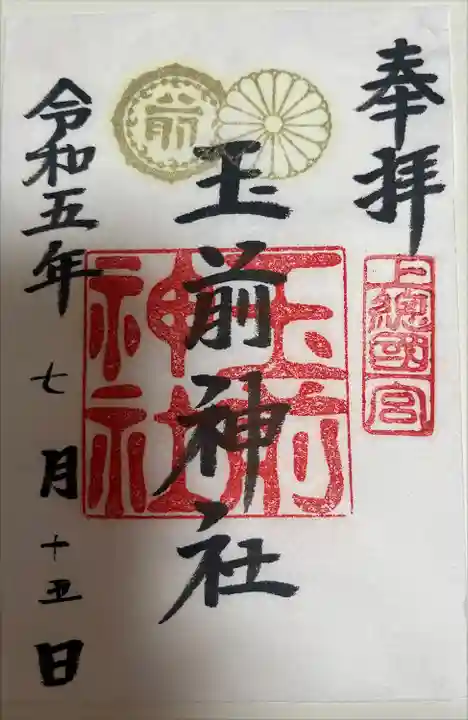 奉拝
上總國一宮
前
玉前神社
玉前神社
令和五年七月十五日